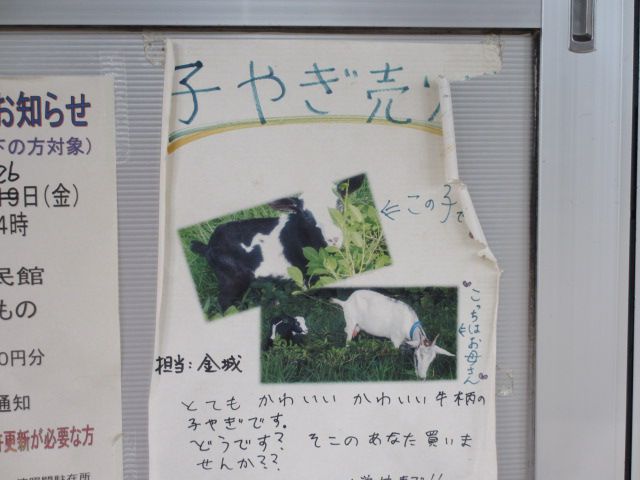 お知らせ
下の方対象)
26
19日(金)
4時
民館
もの
0円分
通知
許更新が必要な方
子やぎ売
この子
こっちはお母さん
担当:金城
とても かわいい かわいい 牛柄の
子やぎです。
どうです? そこのあなた買いま
せんか??